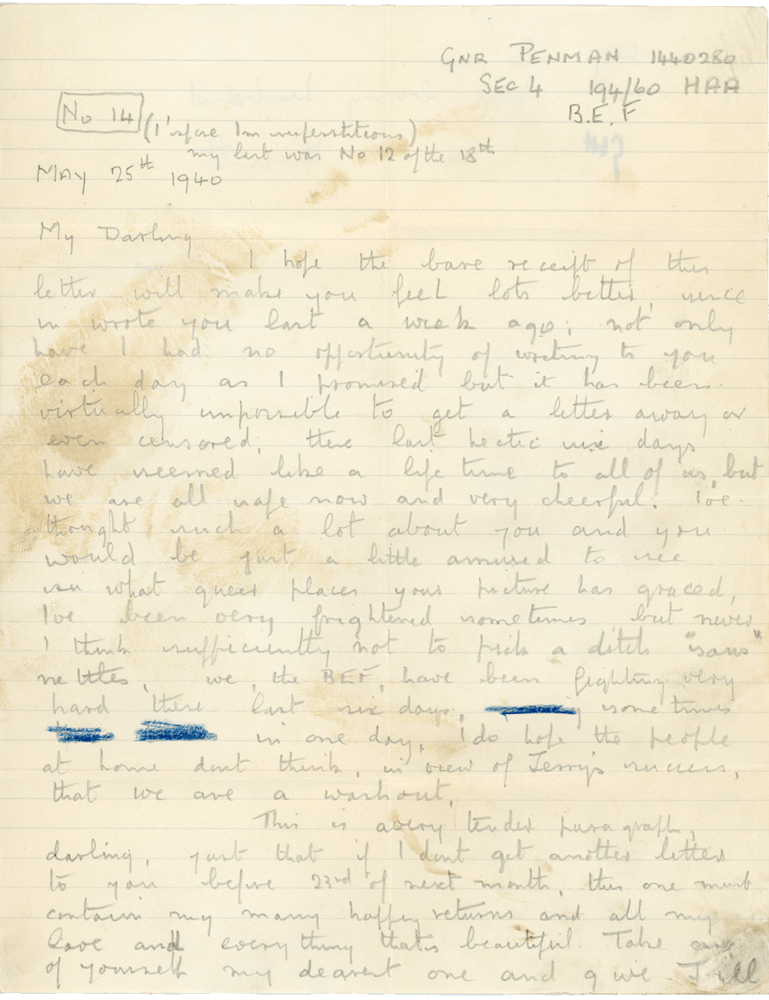 GNR PENMAN 1440280
SEC 4 194/60 HAA
B.E.F
No 14 (I'spose Im superstitious)
my last was No 12 of the 18th
MAY 25th 1940
My Darling
I hope the bare receipt of this
letter will make you feel lots better, since
wrote you last a week ago; not only
have I had no opportunity of writing to you
each day as I promised but it has been
virtually impossible to get a letter away or
even censored, these last hectic six days
have seemed like a life time to all of us, but
we are all safe now and very cheerful. I've
thought such a lot about you and you
would be just a little amused to see
in what queer places your picture has graced,
I've been very frightened sometimes but never
I think sufficiently not to pick a ditch "sans"
nettles, we, the BEF, have been fighting very
hard these last six days, sometimes
in one day, I do hope the people
at home dont think, in view of Jerry's success,
that we are a washout,
This is a very tender paragraph,
darling, just that if I dont get another letter
to you before 23rd of next month, this one must
contain my many happy returns and all my
love and everything thats beautiful. Take care
of yourself my dearest one and give Jill